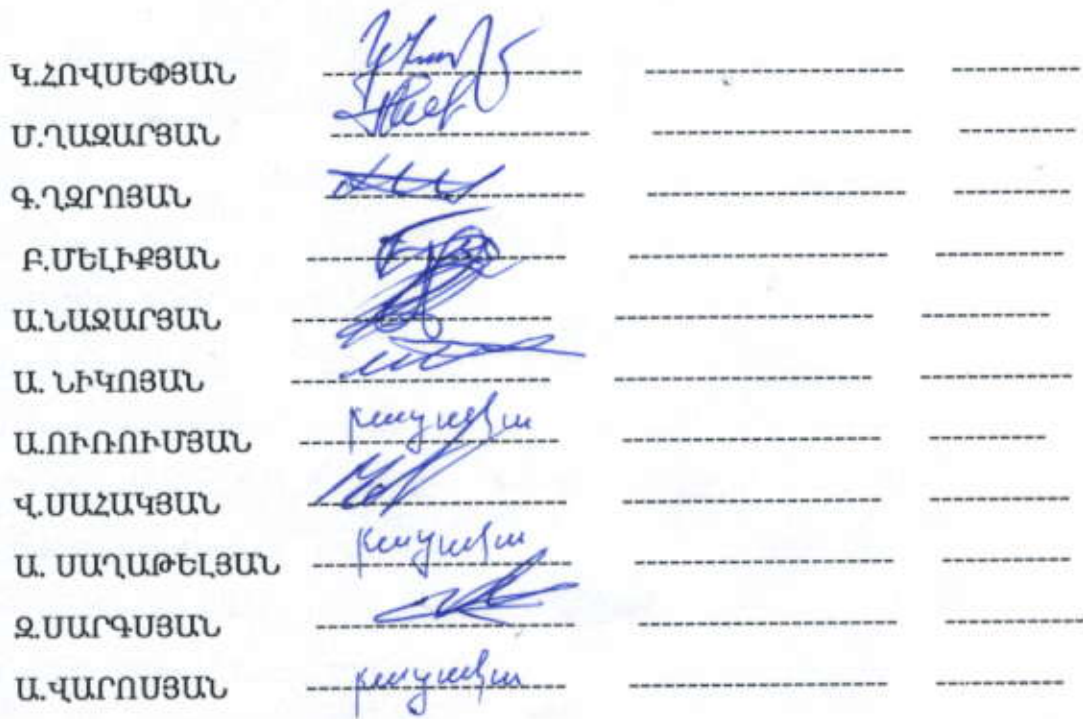 Կ.ՀՈՎՍԵՓՅԱՆ
Մ.ՂԱԶԱՐՅԱՆ
Գ.ՂՋՐՈՅԱՆ
Բ.ՄԵԼԻՔՅԱՆ
Ա.ՆԱՋԱՐՅԱՆ
Ա. ՆԻԿՈՅԱՆ
Ա.ՈՒՌՈՒՄՅԱՆ բացակա
Վ.ՍԱՀԱԿՅԱՆ
Ա. ՍԱՂԱԹԵԼՅԱՆ բացակա
Զ.ՍԱՐԳՍՅԱՆ
Ա.ՎԱՐՈՍՅԱՆ բացակա